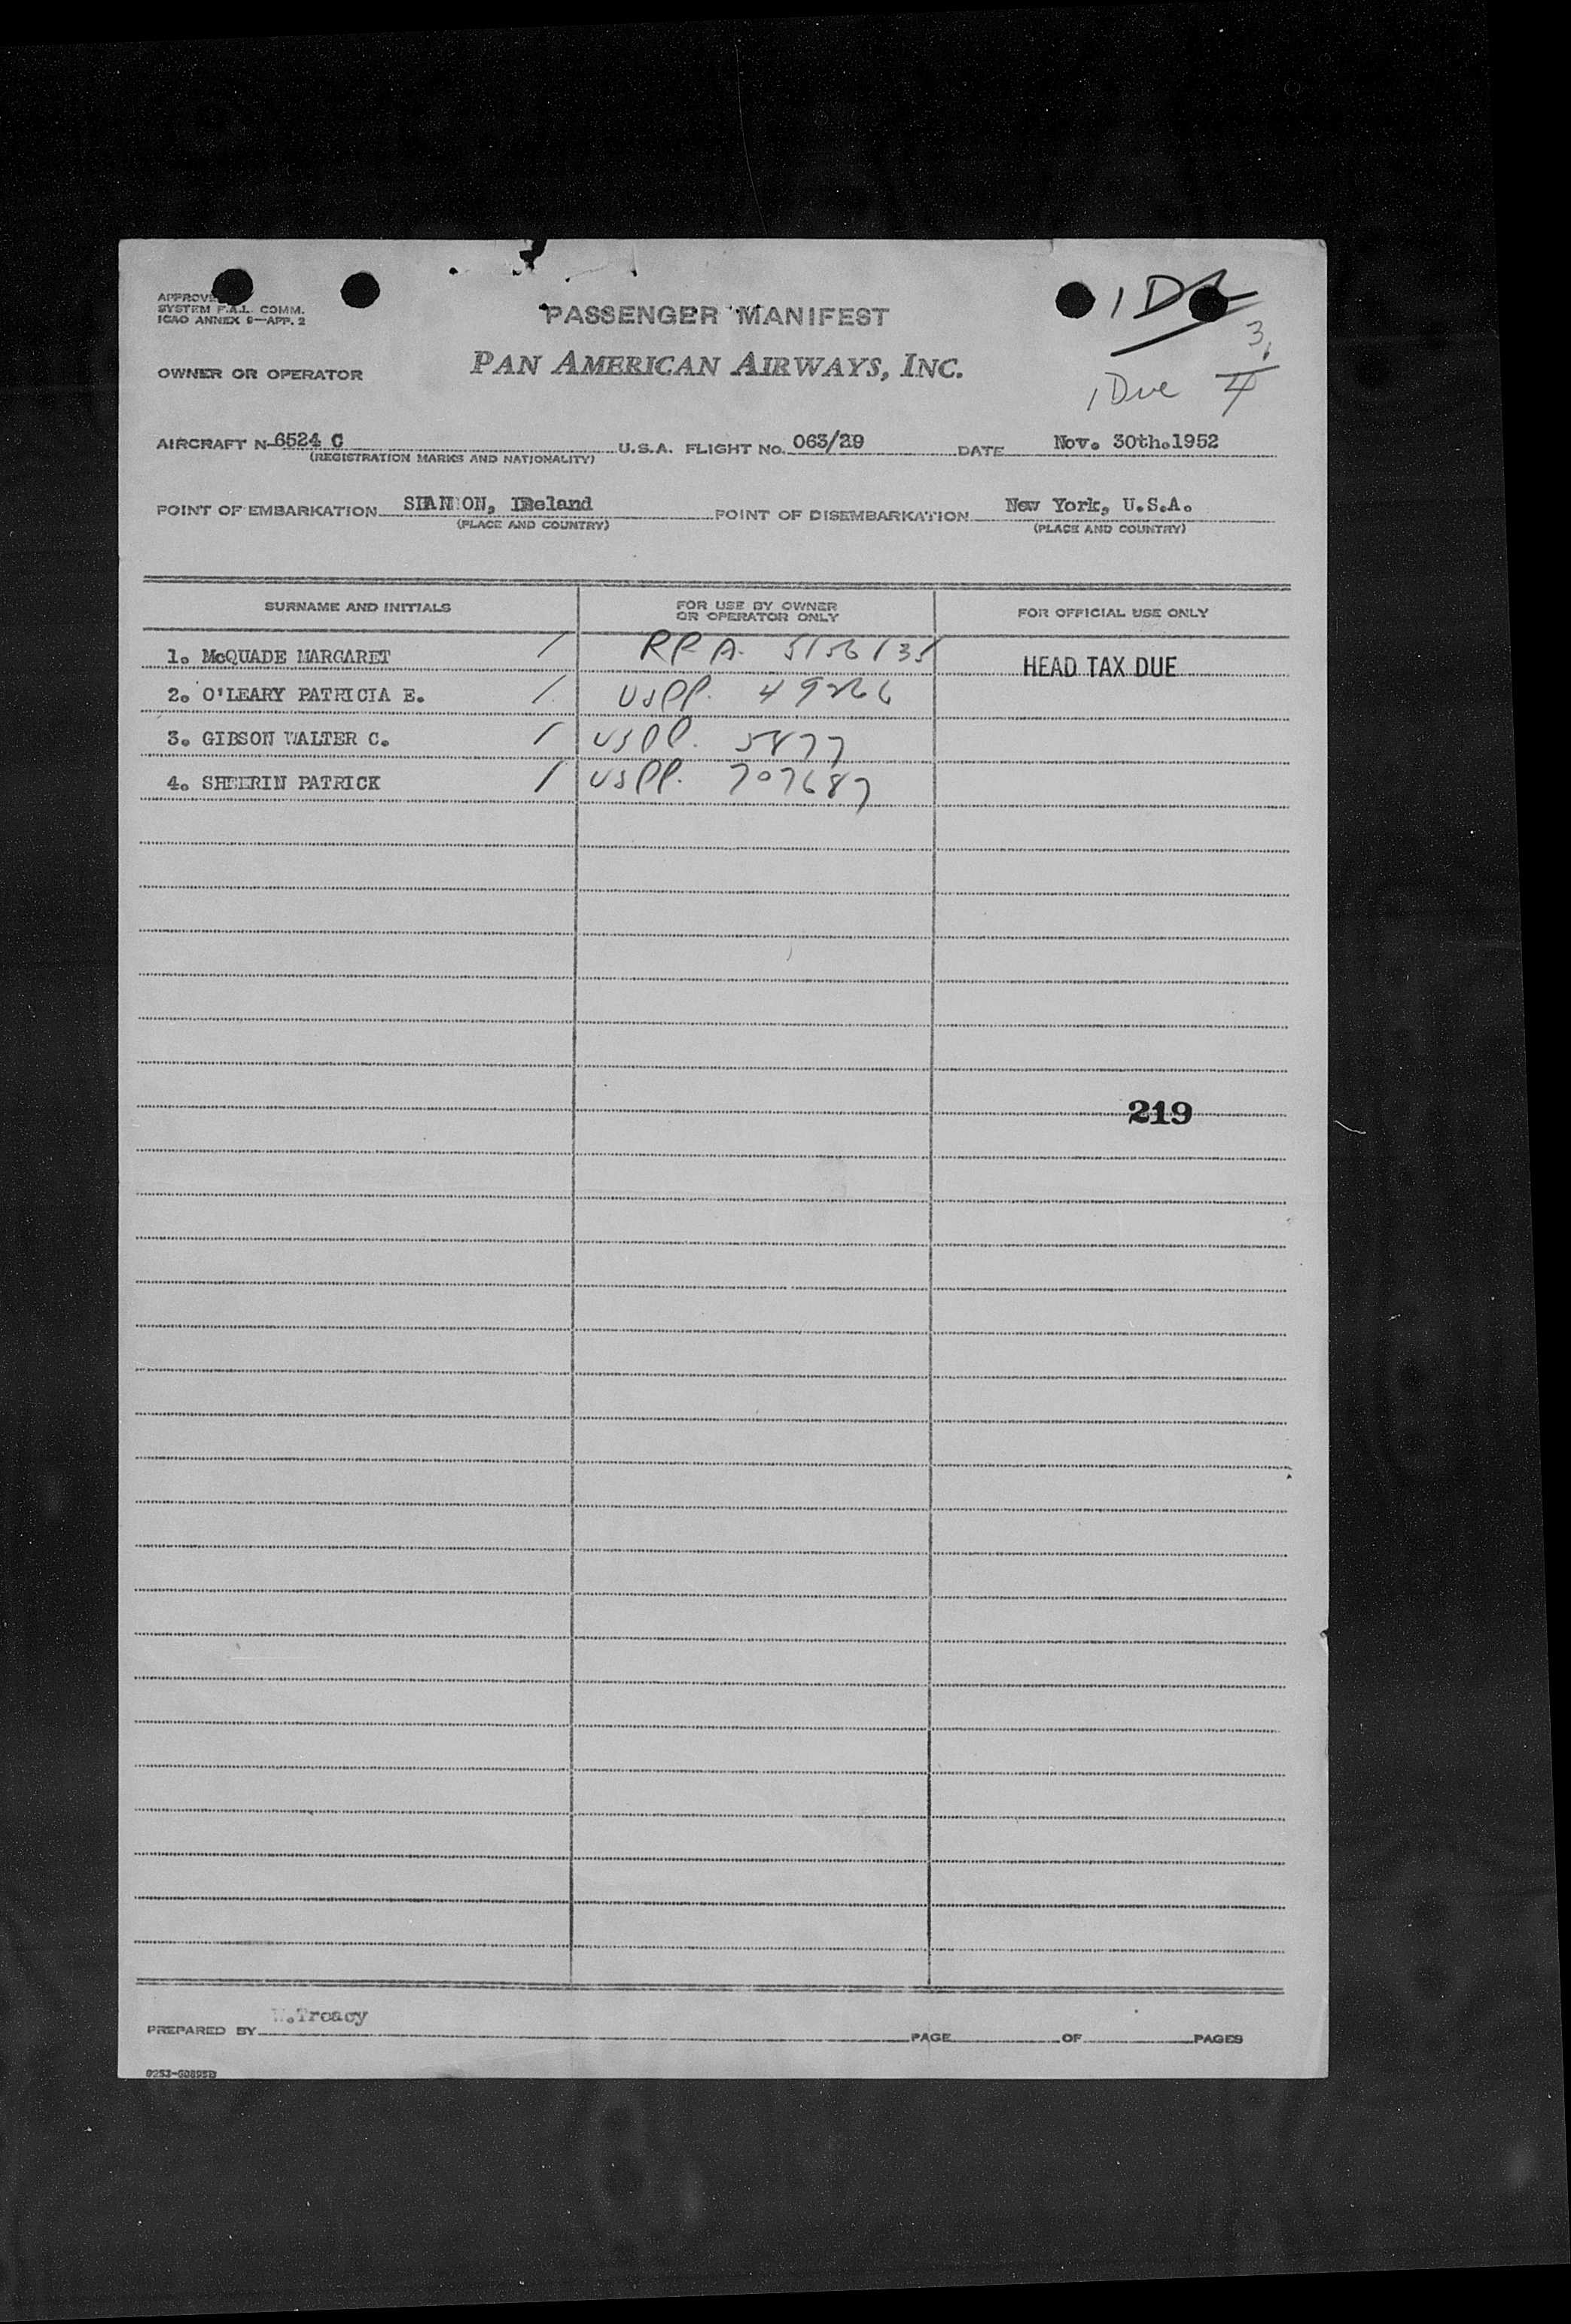 APPROVE
SYSTEM F.A.L. COMM.
ICAO ANNEX 9—APP. 2
PASSENGER MANIFEST
OWNER OR OPERATOR PAN AMERICAN AIRWAYS, INC.
3
1 Due 4
AIRCRAFT N-6524 C U.S.A. FLIGHT NO. 063/29 DATE Nov. 30th.1952
(REGISTRATION MARKS AND NATIONALITY)
POINT OF EMBARKATION SHANNON, Ireland POINT OF DISEMBARKATION New York, U.S.A.
(PLACE AND COUNTRY) (PLACE AND COUNTRY)
SURNAME AND INITIALS FOR USE BY OWNER OR OPERATOR ONLY FOR OFFICIAL USE ONLY
1. McQUADE MARGARET / RPA. 5156135 HEAD TAX DUE
2. O'LEARY PATRICIA E. / USPP. 49266
3. GIBSON WALTER C. / USPP. 5877
4. SHEERIN PATRICK / USPP. 707687
219
PREPARED BY W.Treacy PAGE OF PAGES